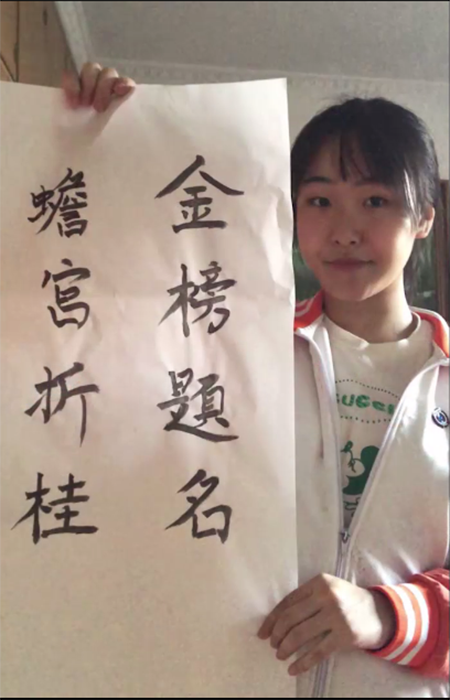 金榜題名
蟾宫折桂
GUCCI